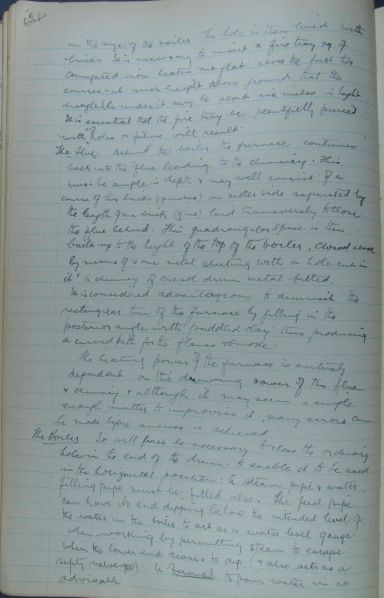 on the size of the boiler. The hole is then lined with
bricks. It is necessary to insert a fire tray eg. of
corrugated iron beaten out flat above the first two
courses at such height above ground that the
draught hole under it may be about six inches in height
It is essential that the fire tray be plentifully pierced
with holes or failure will result.
The Flue. Behind the boiler the furnace continues
back into the flue leading to the chimney. This
must be ample in depth & may well consist of a
course of two bricks on either side separated by
the length of one brick (9 ins) laid transversely to close
the flue behind. This quadrangular space is then
built up to the height of the top of the boiler, closed above
by means of some metal sheeting with a hole cut in
it & a chimney of cresol drum metal fitted.
It is considered advantageous to diminish the
rectangular turn of the furnace by filling in the
posterior angle with puddled clay thus producing
a curved path for the flames & smoke.
The heating power of the furnace is entirely
dependent on the drawing power of the flue
& chimney & although it may seem a simple
enough matter to improvise it, many errors can
be made before success is achieved.
The Boiler. It will first be necessary to close the ordinary
hole in the end of the drum to enable it to be used
in the horizontal position: a steam pipe & water
filling pipe must be fitted also. The feed pipe
can have its end dipping below the intended level of
the water in the boiler to act as a water level gauge
when working by permitting steam to escape
when the lower end ceases to dip (& also acts as a
safety valve) A funnel to pour water in is
advisable